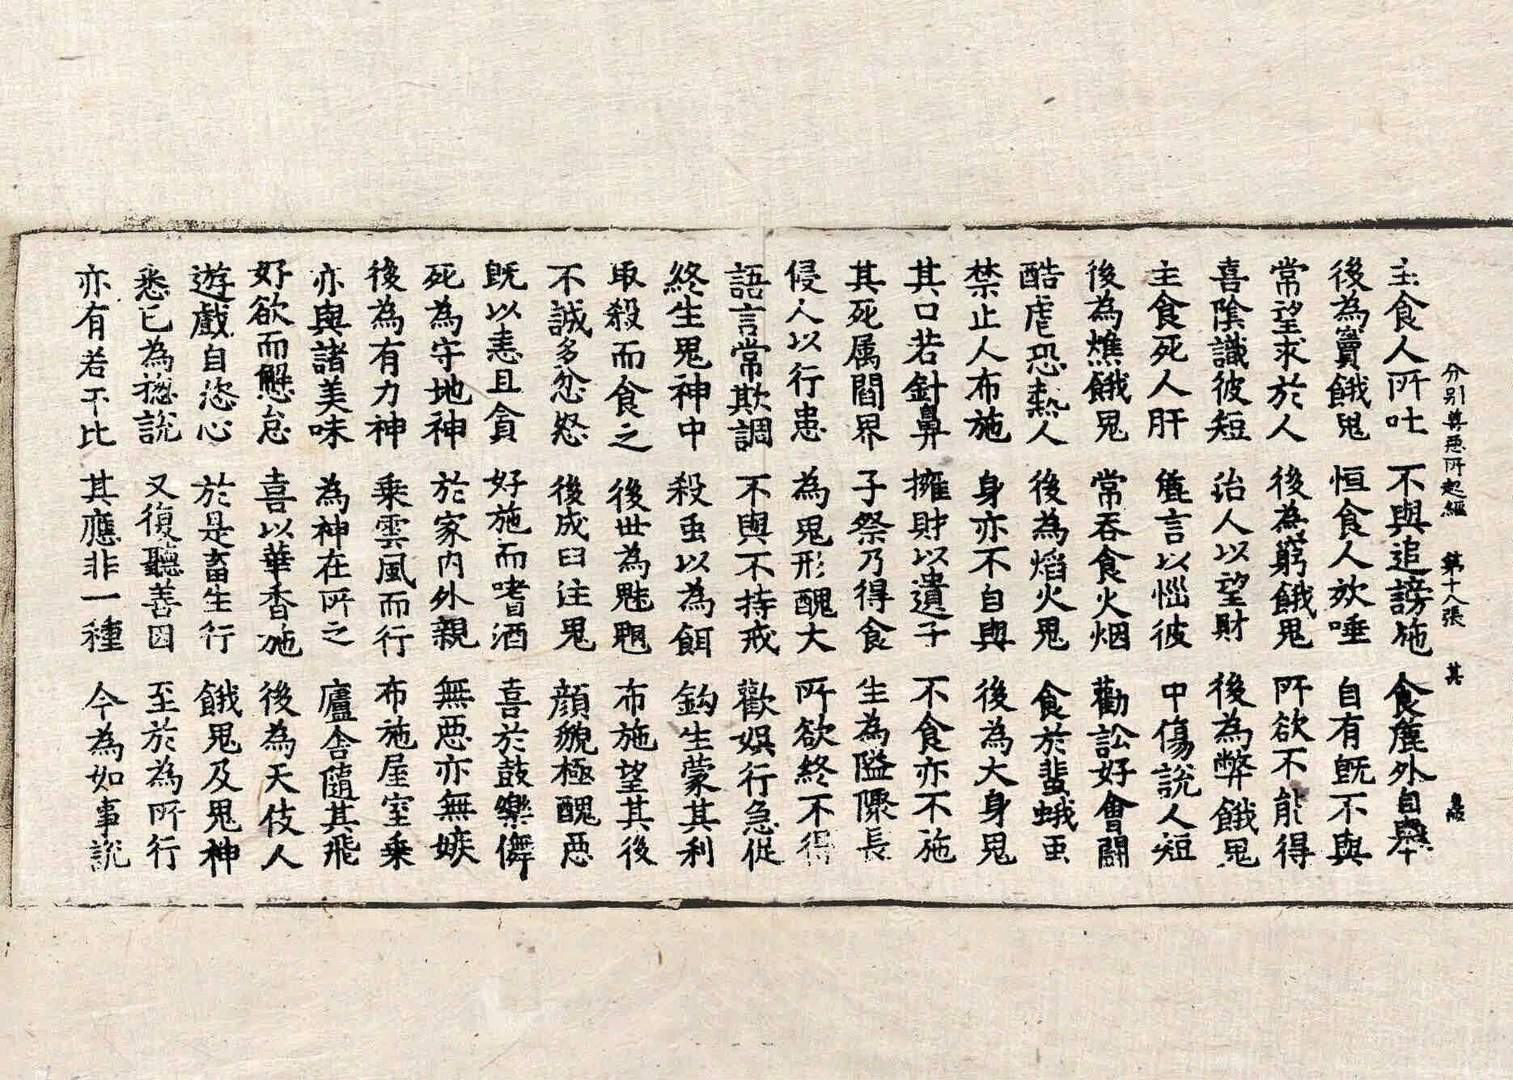 主食人所吐　不與追謗施　食麁外自舉
後為竇餓鬼　恒食人欬唾　自有既不與
常望求於人　後為窮餓鬼　所欲不能得
喜陰識彼短　治人以望財　後為弊餓鬼
主食死人肝　麁言以惱彼　中傷說人短
後為燋餓鬼　常吞食火烟　勸訟好會鬪
酷虐恐熱人　後為焰火鬼　食於蜚蛾虫
禁止人布施　身亦不自與　後為大身鬼
其口若針鼻　擁財以遺子　不食亦不施
其死属閻界　子祭乃得食　生為隘隟長
侵人以行患　為鬼形醜大　所欲終不得
語言常欺調　不與不持戒　歡娛行急促
終生鬼神中　殺虫以為餌　鈎生蒙其利
取殺而食之　後世為魅魍　布施望其後
不誠多忿怒　後成曰注鬼　顏貌極醜惡
既以恚且貪　好施而嗜酒　喜於鼓樂儛
死為守地神　於家內外親　無惡亦無嫉
後為有力神　乘雲風而行　布施屋室乘
亦與諸美味　為神在所之　廬舍隨其飛
好欲而懈怠　喜以華香施　後為天伎人
遊戲自恣心　於是畜生行　餓鬼及鬼神
悉已為揔說　又復聽善因　至於為所行
亦有若干比　其應非一種　今為如事說
分別善惡所起經　第十八張　其